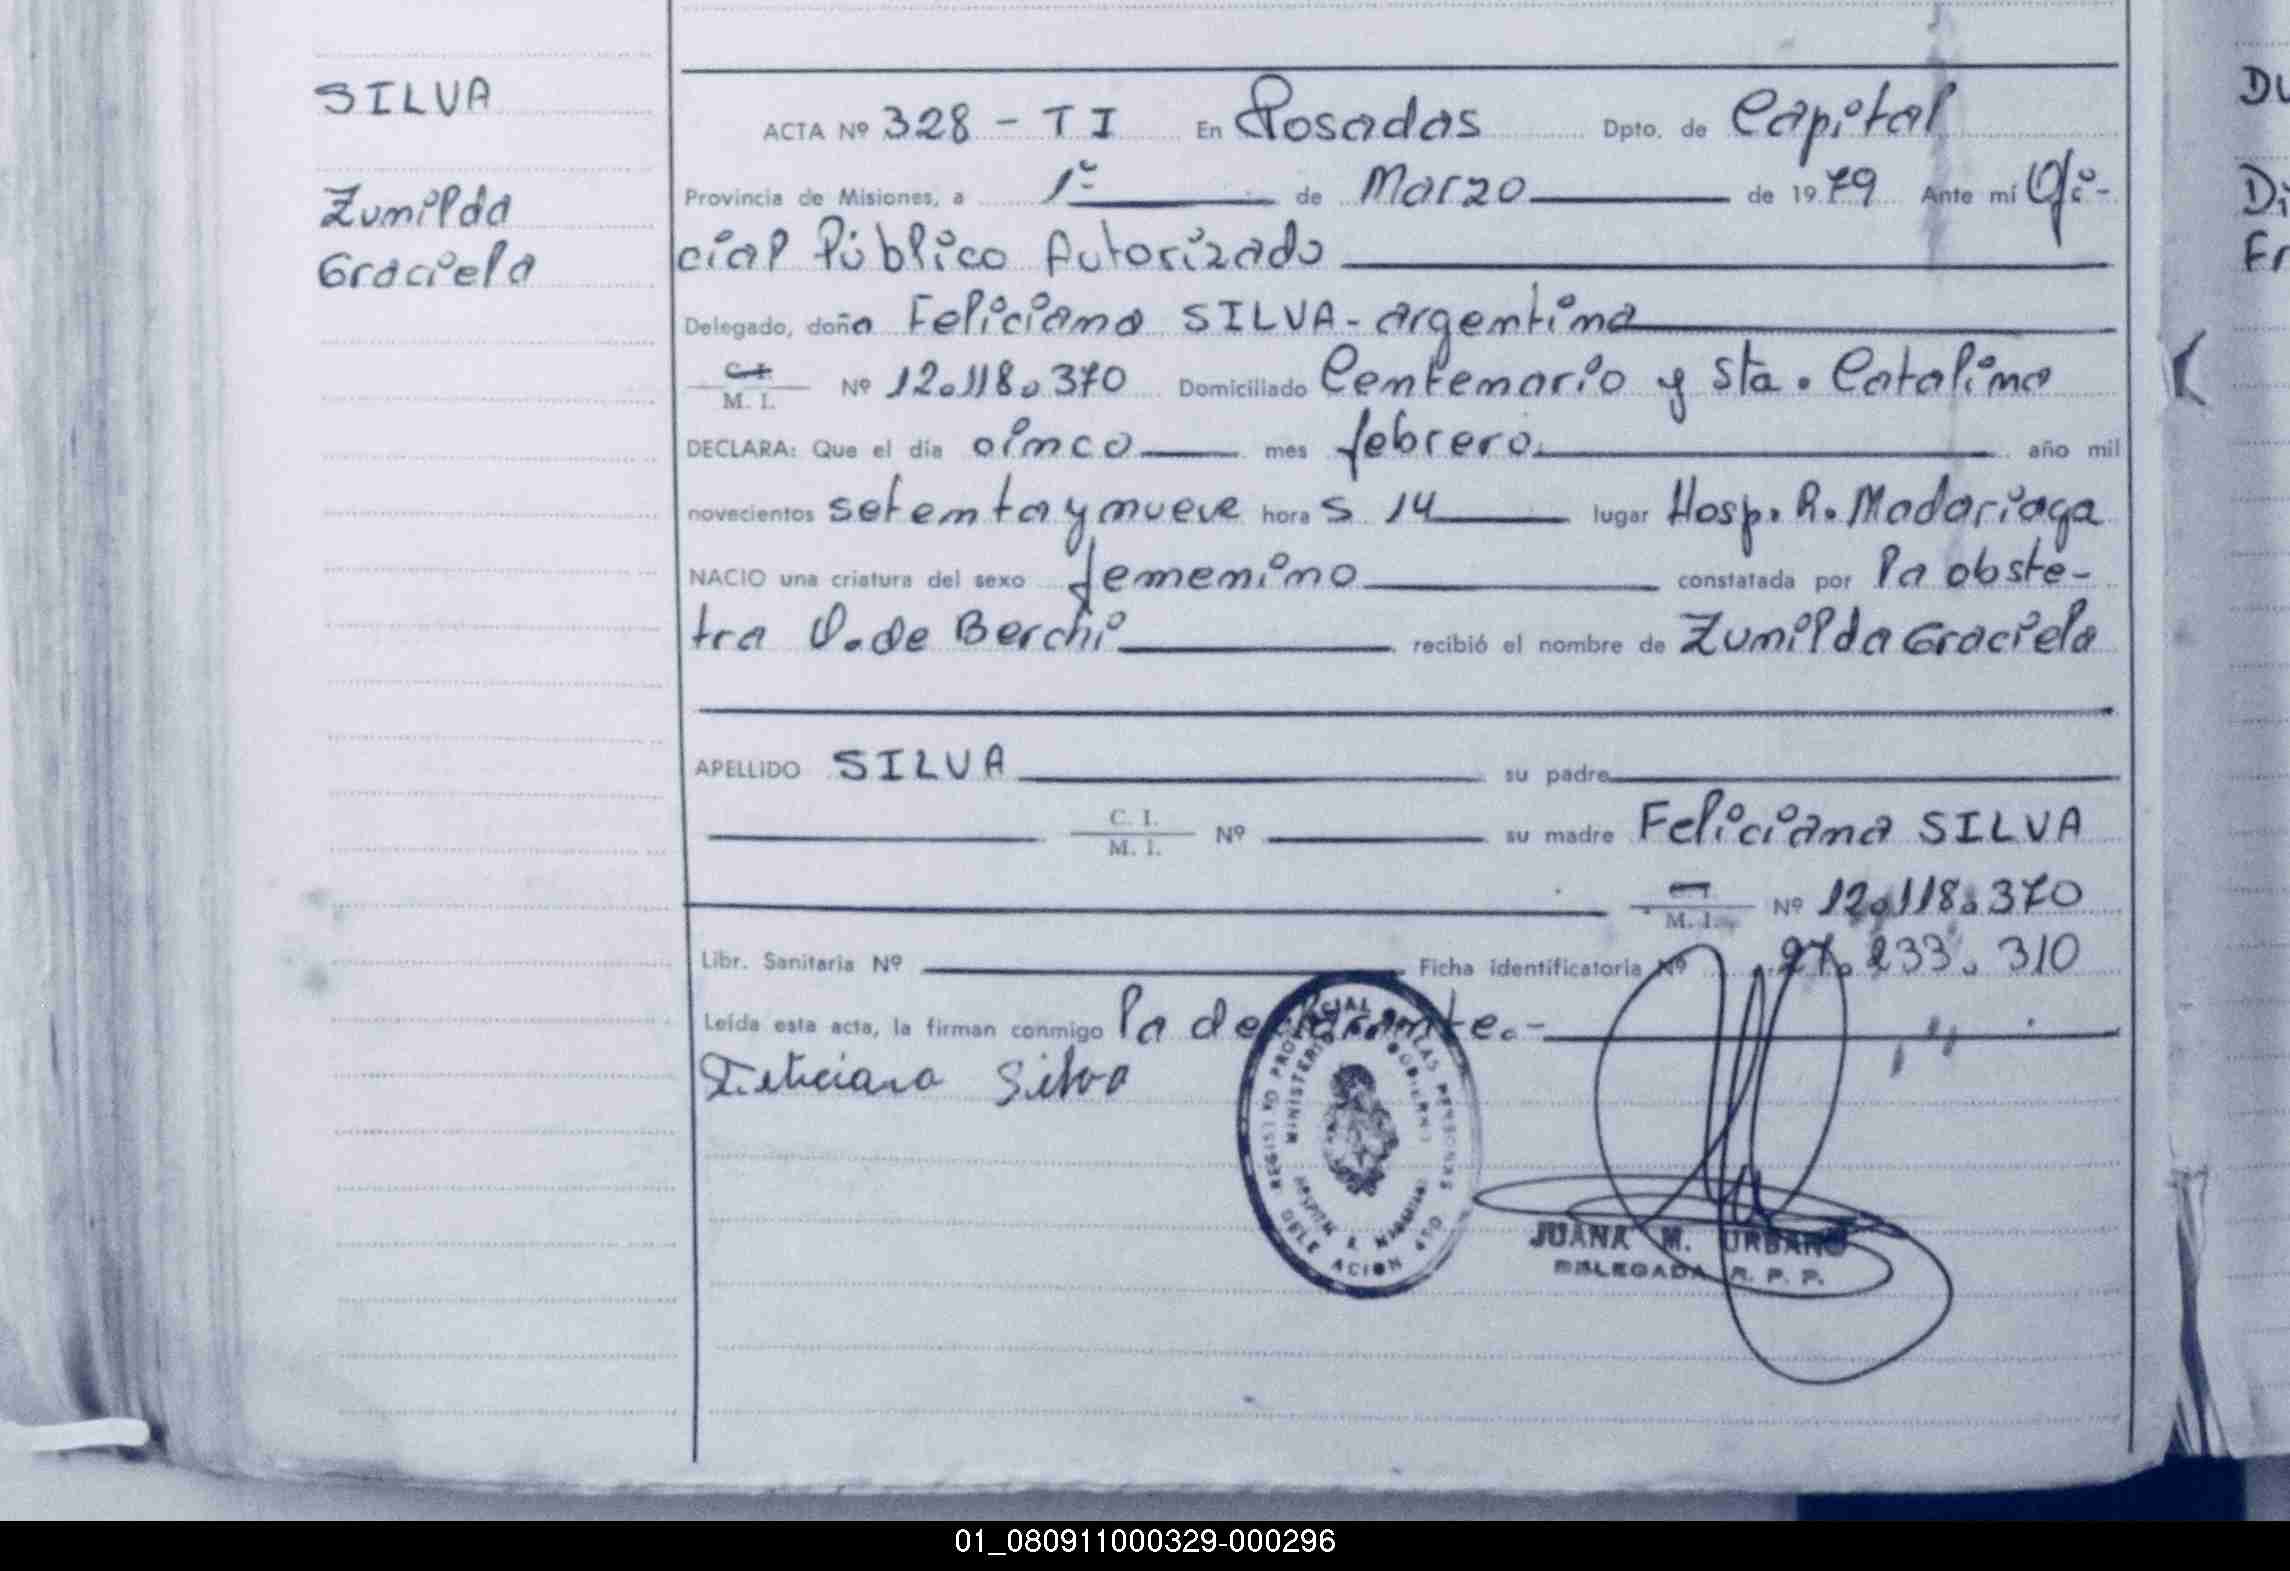 SILVA
Zunilda
Graciela
ACTA Nº 328 - TI En Posadas Dpto. de Capital
Provincia de Misiones, a 1º de Marzo de 1979 Ante mí Ofi-
cial Público Autorizado
Delegado, doña Feliciana SILVA - argentina
C. I.
M. I. Nº 12.118.370 Domiciliado Centenario y Sta. Catalina
DECLARA: Que el día cinco mes febrero año mil
novecientos setenta y nueve hora s 14 lugar Hosp. R. Madariaga
NACIO una criatura del sexo femenino constatada por la obste-
tra O. de Berchi recibió el nombre de Zunilda Graciela
APELLIDO SILVA su padre
C. I.
M. I. Nº su madre Feliciana SILVA
C. I.
M. I. Nº 12.118.370
Libr. Sanitaria Nº Ficha identificatoria Nº 27.233.310
Leída esta acta, la firman conmigo la declarante.-
Feliciana Silva
REGISTRO PROVINCIAL DE LAS PERSONAS
MINISTERIO DE GOBIERNO
HOSPITAL R. MADARIAGA
DELEGACION
JUANA M. URBANO
DELEGADA R. P. P.
DU
Di
Fr
01_080911000329-000296